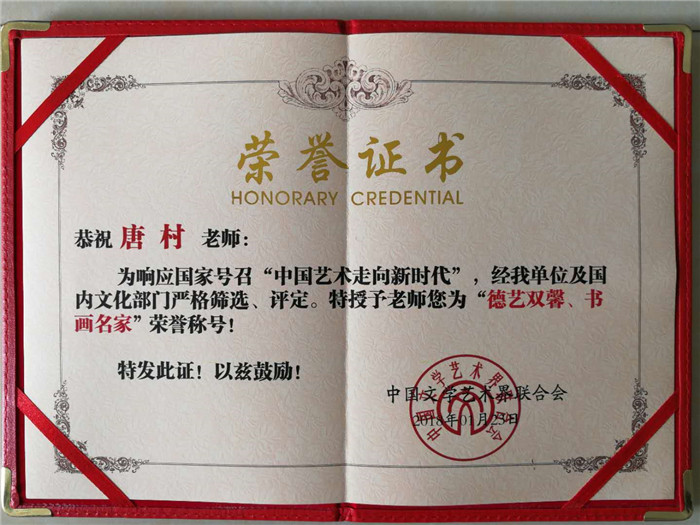 荣誉证书
HONORARY CREDENTIAL
恭祝 唐村 老师：
为响应国家号召“中国艺术走向新时代”，经我单位及国
内文化部门严格筛选、评定。特授予老师您为“德艺双馨、书
画名家”荣誉称号！
特发此证！以兹鼓励！
中国文学艺术界联合会
2018年01月25日
中国文学艺术界联合会